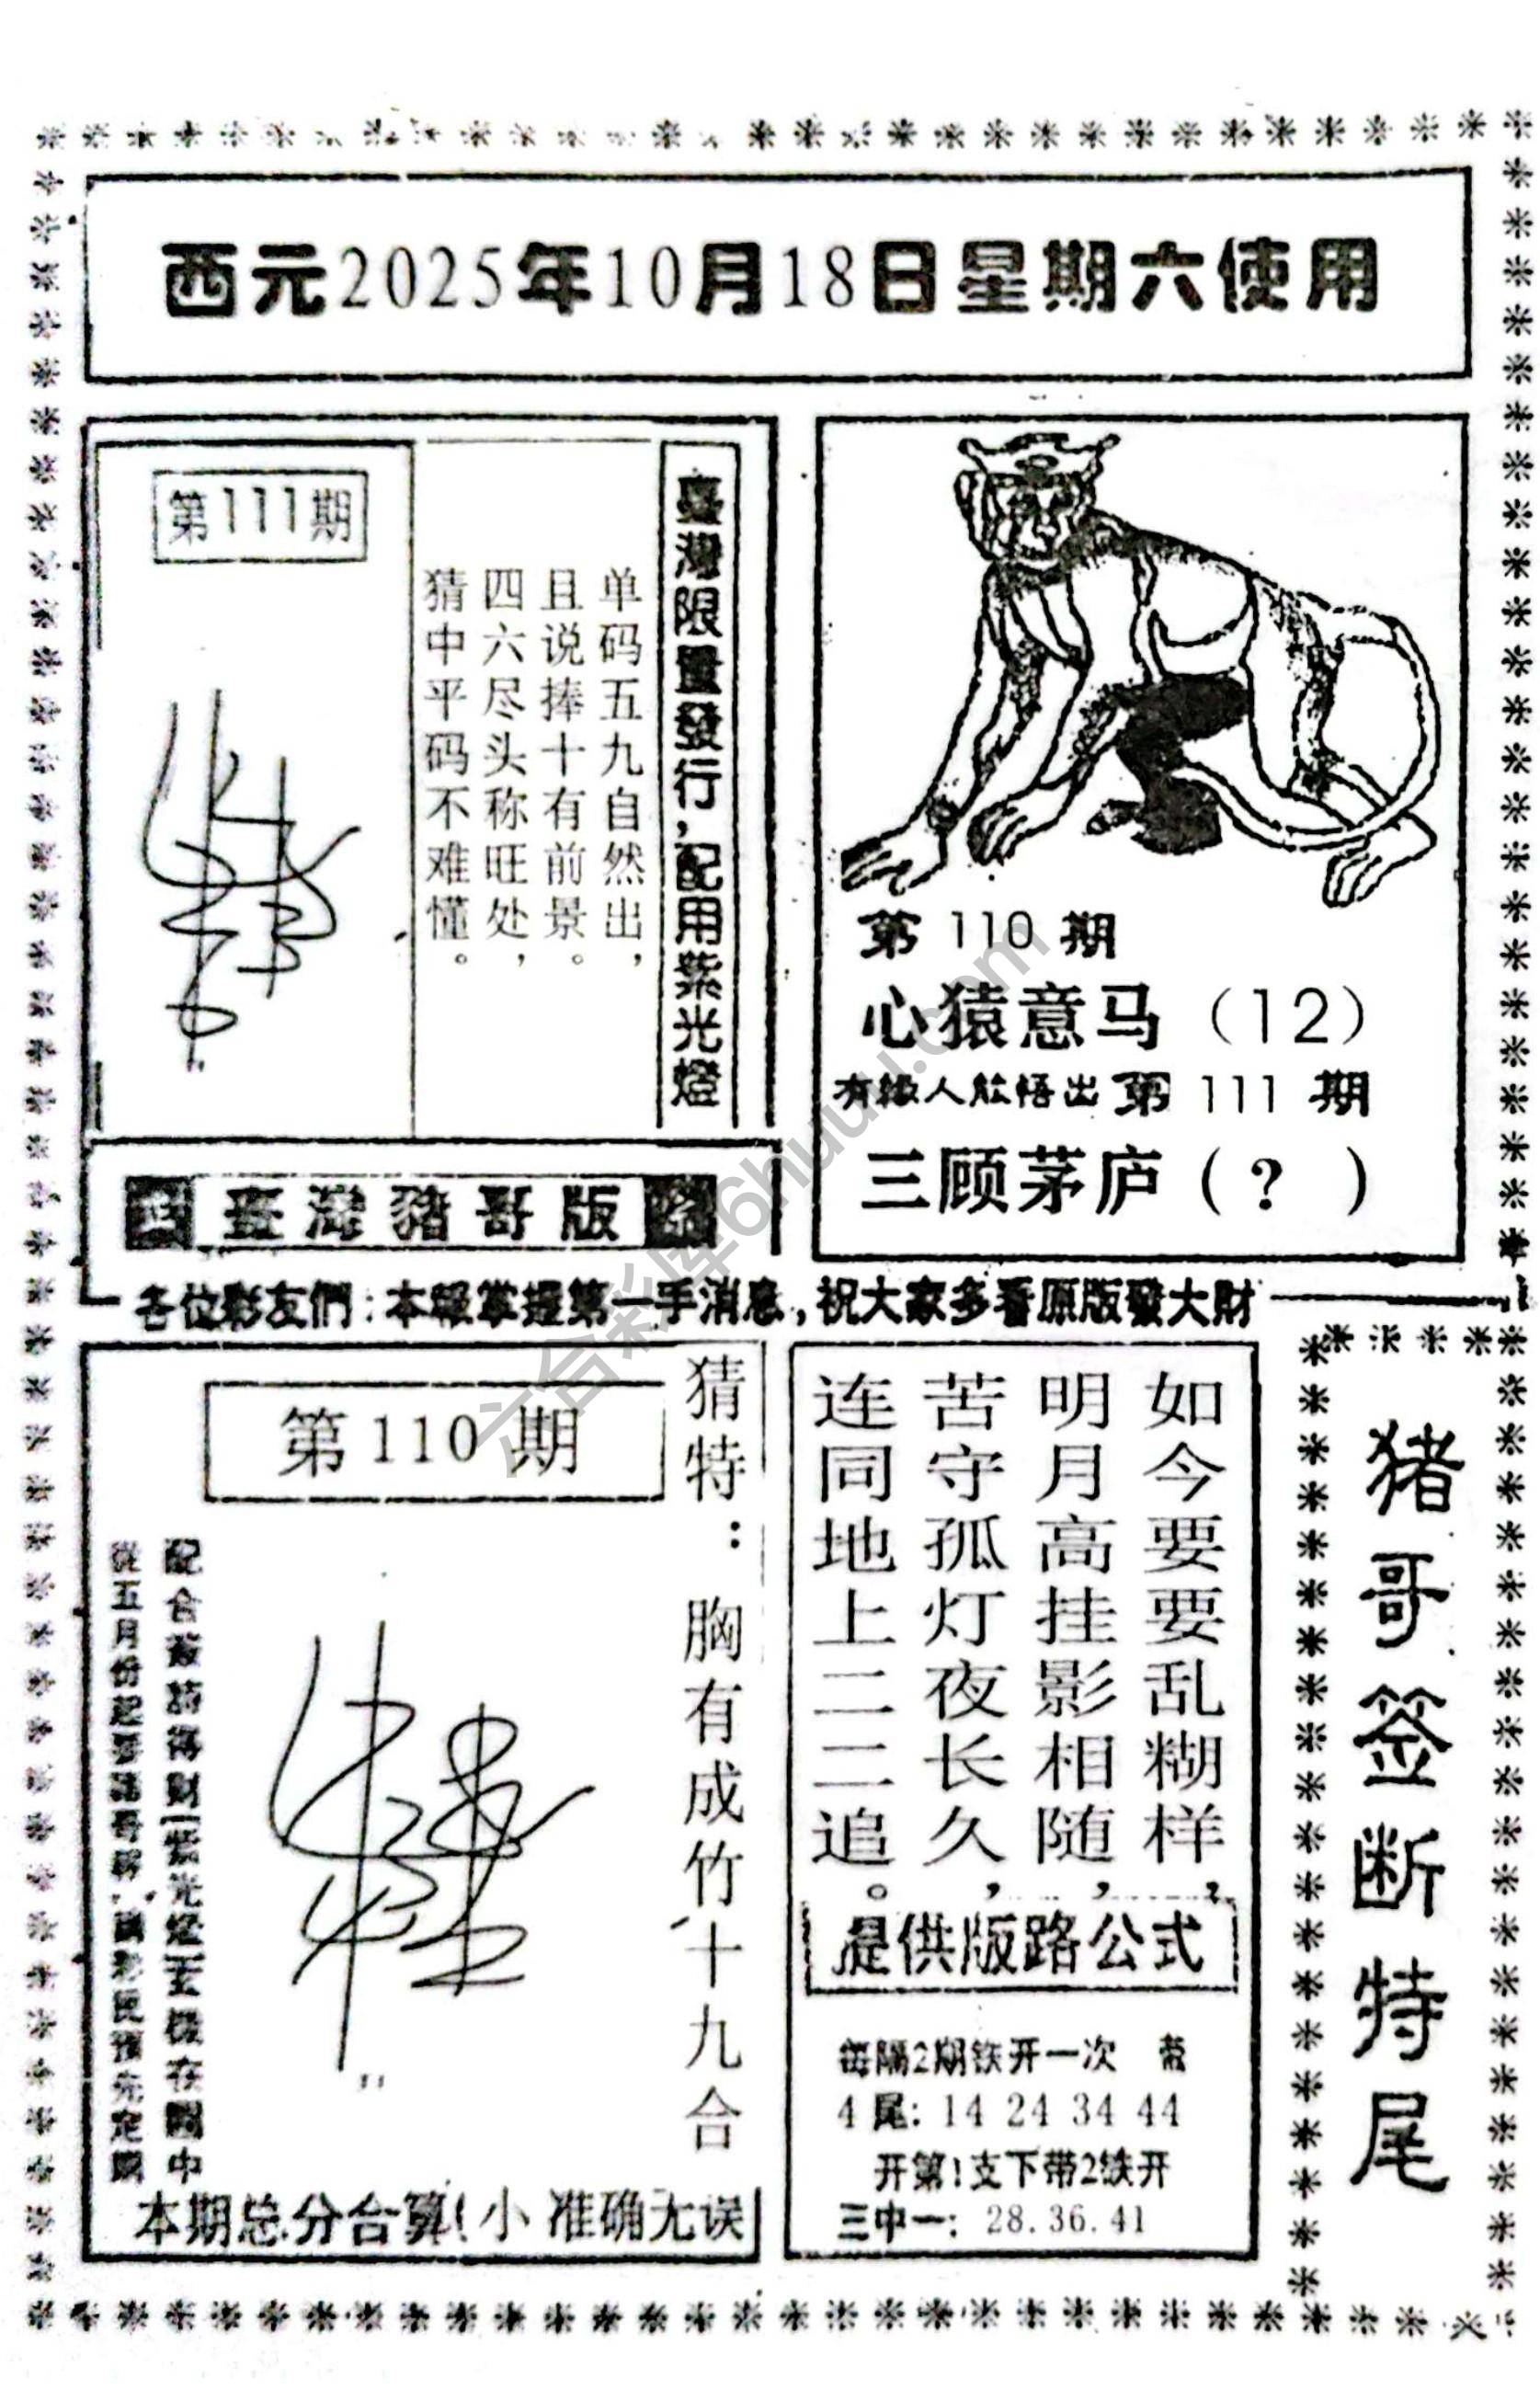 西元2025年10月18日星期六使用
第111期
臺灣限量發行,配用紫光燈
单码五九自然出,
且说捧十有前景。
四六尽头称旺处,
猜中平码不难懂。
臺灣豬哥版
第 110 期
心猿意马（12）
有緣人能悟出 第 111 期
三顾茅庐（? ）
各位彩友們:本報掌握第一手消息,祝大家多看原版發大財
第110期
猜特：胸有成竹十九合
本期总分合算(小 准确无误
如今要要乱糊样,
明月高挂影相随,
苦守孤灯夜长久,
连同地上二二追。
提供版路公式
每隔2期铁开一次 带
4尾: 14 24 34 44
开第1支下带2铁开
三中一: 28.36.41
猪哥签断特尾
六合彩库6huuu.com